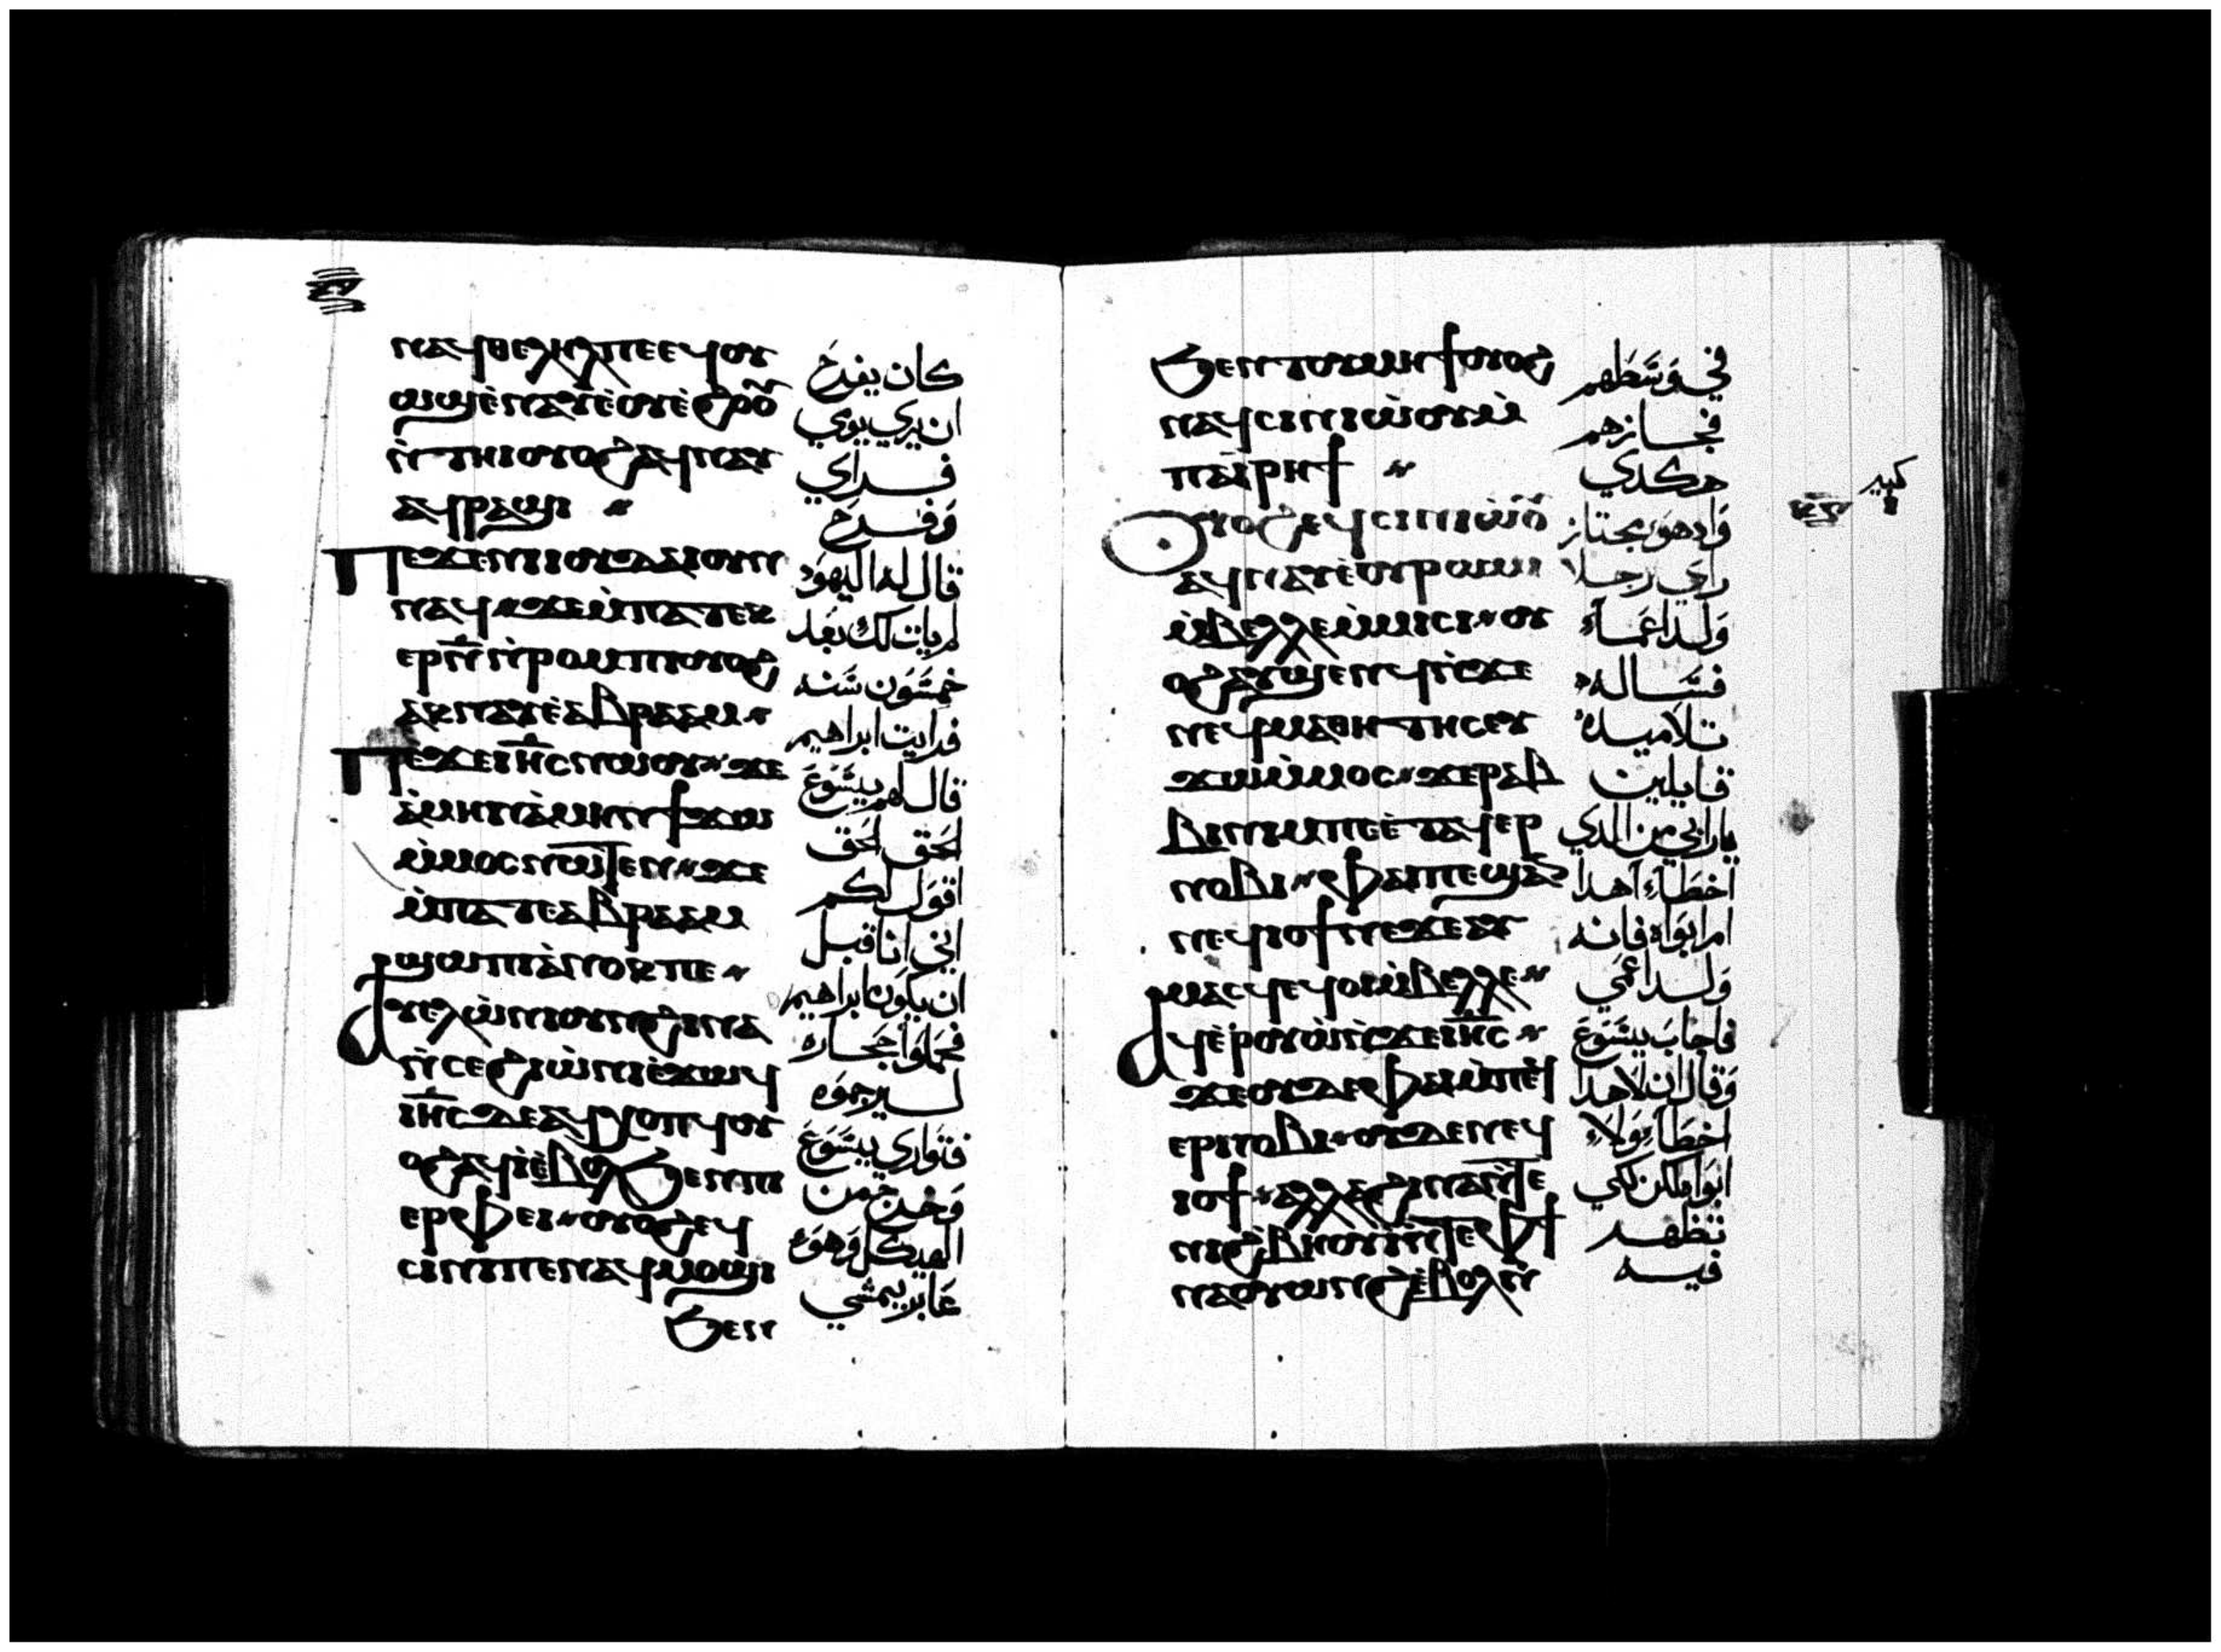 ⲛⲁϥⲑⲉⲗⲏⲗⲡⲉⲉϥⲟⲩ
ⲱϣⲉ̀ⲛⲁⲩⲉ̀ⲟⲩⲉ̀ϩⲟⲟⲩ
ⲛ̀ⲧⲏⲓⲟⲩⲟϩⲁϥⲛⲁⲩ
ⲁϥⲣⲁϣⲓ
ⲡⲉϫⲉⲛⲓⲓⲟⲩⲇⲁⲓⲟⲩⲛ
ⲛⲁϥϫⲉⲙ̀ⲡⲁⲧⲉⲕ
ⲉⲣⲛ̅ⲛ̀ⲣⲟⲙⲡⲓⲟⲩⲟϩ
ⲁⲕⲛⲁⲩⲉ̀ⲁⲃⲣⲁⲁⲙ
ⲡⲉϫⲉⲓⲏ̅ⲥⲛⲱⲟⲩϫⲉ
ⲁ̀ⲙⲏⲛⲁ̀ⲙⲏⲛϯϫⲱ
ⲙ̀ⲙⲟⲥⲛⲱⲧⲉⲛϫⲉ
ⲙ̀ⲡⲁⲧⲉⲁⲃⲣⲁⲁⲙ
ϣⲱⲡⲓⲁ̀ⲛⲟⲕⲡⲉ
ⲁⲩⲉⲗⲱ̀ⲛⲓⲟⲩⲛϩⲓⲛⲁ
ⲛ̀ⲥⲉϩⲓⲱ̀ⲛⲓⲉ̀ϫⲱϥ
ⲓⲏ̅ⲥⲇⲉⲁϥⲭⲟⲡϥⲟⲩ
ⲟϩⲁϥⲓ̀ⲉ̀ⲃⲟⲗϧⲉⲛⲡⲓ
ⲉⲣⲫⲉⲓⲟⲩⲟϩⲉϥ
ⲥⲓⲛⲓⲡⲉⲛⲁϥⲙⲟϣⲓ
ϧⲉⲛ
كان يفرح
ان يري يومي
فراي
وفرح
قال له اليهود
لم يات لك بعد
خمسون سنه
فرايت ابراهيم
قال لهم يسوع
الحق الحق
اقول لكم
اني انا قبل
ان يكون ابراهيم
فحملوا حجاره
ليرجموه
فتواري يسوع
وخرج من
الهيكل وهو
عابر يمشي
ϧⲉⲛⲧⲟⲩⲙⲏϯⲟⲩⲟϩ
ⲛⲁϥⲥⲓⲛⲓⲱ̀ⲟⲩⲙ̀
ⲡⲁⲓⲣⲏϯ
ⲟⲩⲟϩⲉϥⲥⲓⲛⲓⲱ̀ⲟⲩ
ⲁϥⲛⲁⲩⲉ̀ⲟⲩⲣⲱⲙⲓ
ⲙ̀ⲃⲉⲗⲗⲉⲙ̀ⲙⲓⲥⲓⲟⲩ
ⲟϩⲁⲩϣⲉⲛϥⲛ̀ϫⲉ
ⲛⲉϥⲙⲁⲑⲏⲧⲏⲥⲉⲩ
ϫⲱⲙ̀ⲙⲟⲥϫⲉⲣⲁⲃ
ⲃⲓⲛⲓⲙⲡⲉⲉ̀ⲧⲁϥⲉⲣ
ⲛⲟⲃⲓⲫⲁⲓⲡⲉϣⲁⲛ
ⲛⲉϥⲓⲟϯⲛⲉϫⲉⲁⲩ
ⲙⲁⲥϥⲉϥⲟⲓⲙ̀ⲃⲉⲗⲗⲉ
ⲁϥⲉ̀ⲣⲟⲩⲱ̀ⲛ̀ϫⲉⲓⲏ̅ⲥ
ϫⲉⲟⲩⲇⲉⲫⲁⲓⲙ̀ⲡⲉϥ
ⲉⲣⲛⲟⲃⲓⲟⲩⲇⲉⲛⲉϥ
ⲓⲟϯⲁⲗⲗⲁϩⲓⲛⲁⲛ̀ⲧⲉ
ⲛⲓϩ̀ⲃⲏⲟⲩⲓ̀ⲛ̀ⲧⲉⲫϯ
ⲛⲁⲟⲩⲱⲛϩⲉ̀ⲃⲟⲗⲛ̀
في وسطهم
فجازهم
هكدي
وادهو مجتاز
راي رجلا
ولد اعماء
فساله
تلاميده
قايلين
يارابي من الدي
اخطاء اهدا
ام ابواه فانه
ولد اعمي
فاجاب يسوع
وقال ان لا هدا
اخطاء ولا
ابواه لكن لكي
تظهر
فيه
كبير